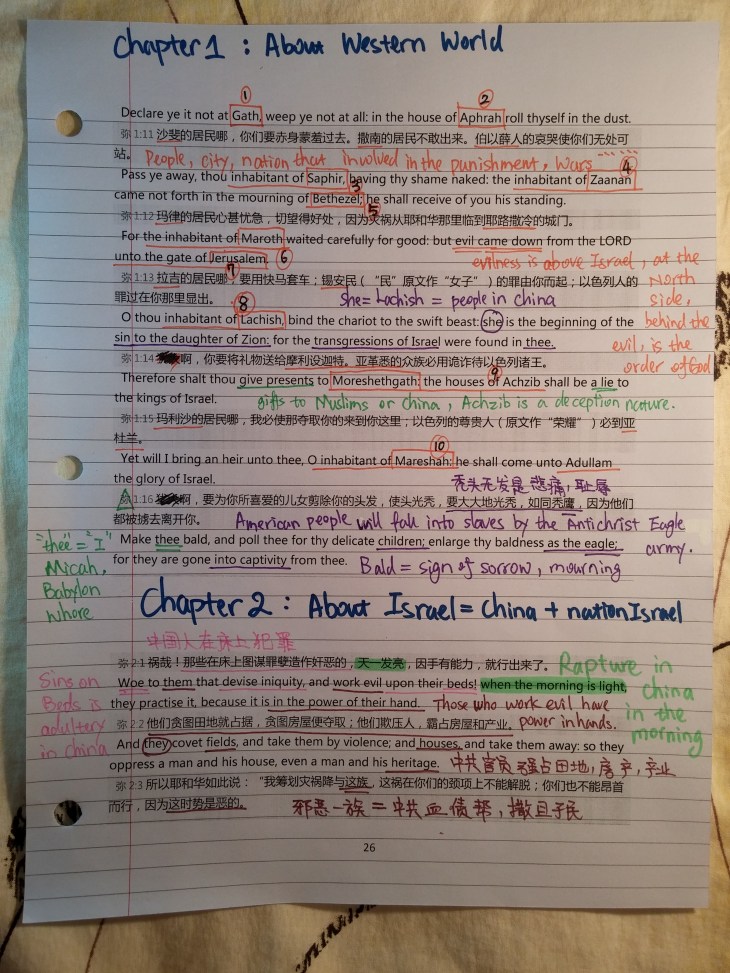 Chapter 1 : About Western World
①
②
Declare ye it not at Gath, weep ye not at all: in the house of Aphrah roll thyself in the dust.
弥 1:11 沙斐的居民哪，你们要赤身蒙羞过去。撒南的居民不敢出来。伯以薛人的哀哭使你们无处可
站。 People, city, nation that involved in the punishment, wars ······
④
Pass ye away, thou inhabitant of Saphir, having thy shame naked: the inhabitant of Zaanan
③
came not forth in the mourning of Bethezel; he shall receive of you his standing.
⑤
弥 1:12 玛律的居民心甚忧急，切望得好处，因为灾祸从耶和华那里临到耶路撒冷的城门。
For the inhabitant of Maroth waited carefully for good: but evil came down from the LORD
unto the gate of Jerusalem. ⑥ evilness is above Israel, at the
North
side,
behind the
evil, is the
order of God
⑦
弥 1:13 拉吉的居民哪，要用快马套车；锡安民（ “民”原文作“女子” ）的罪由你而起；以色列人的
罪过在你那里显出。 ⑧ She = Lachish = people in china
O thou inhabitant of Lachish, bind the chariot to the swift beast: she is the beginning of the
sin to the daughter of Zion: for the transgressions of Israel were found in thee.
弥 1:14 啊，你要将礼物送给摩利设迦特。亚革悉的众族必用诡诈待以色列诸王。
⑨
Therefore shalt thou give presents to Moreshethgath: the houses of Achzib shall be a lie to
the kings of Israel. gifts to Muslims or china, Achzib is a deception nature.
弥 1:15 玛利沙的居民哪，我必使那夺取你的来到你这里；以色列的尊贵人（原文作“荣耀”）必到亚
杜兰。
⑩
Yet will I bring an heir unto thee, O inhabitant of Mareshah: he shall come unto Adullam
the glory of Israel. 秃头无发是悲痛，耻辱
弥 1:16 啊，要为你所喜爱的儿女剪除你的头发，使头光秃，要大大地光秃，如同秃鹰，因为他们
都被掳去离开你。 American people will fall into slaves by the Antichrist Eagle
army.
"thee" = "I"
Micah,
Babylon
whore
Make thee bald, and poll thee for thy delicate children; enlarge thy baldness as the eagle;
for they are gone into captivity from thee. Bald = sign of sorrow, mourning
Chapter 2 : About Israel = China + nation Israel
中国人在床上犯罪
弥 2:1 祸哉！那些在床上图谋罪孽造作奸恶的，天一发亮，因手有能力，就行出来了。
Rapture in
china
in the
morning
Sins on
Beds is
adultery
in china
Woe to them that devise iniquity, and work evil upon their beds! when the morning is light,
they practise it, because it is in the power of their hand. Those who work evil have
power in hands.
弥 2:2 他们贪图田地就占据，贪图房屋便夺取；他们欺压人，霸占房屋和产业。
And they covet fields, and take them by violence; and houses, and take them away: so they
oppress a man and his house, even a man and his heritage. 中共官员强占田地，房产，产业
弥 2:3 所以耶和华如此说： “我筹划灾祸降与这族，这祸在你们的颈项上不能解脱；你们也不能昂首
而行，因为这时势是恶的。 邪恶一族 = 中共血债帮，撒旦子民
26